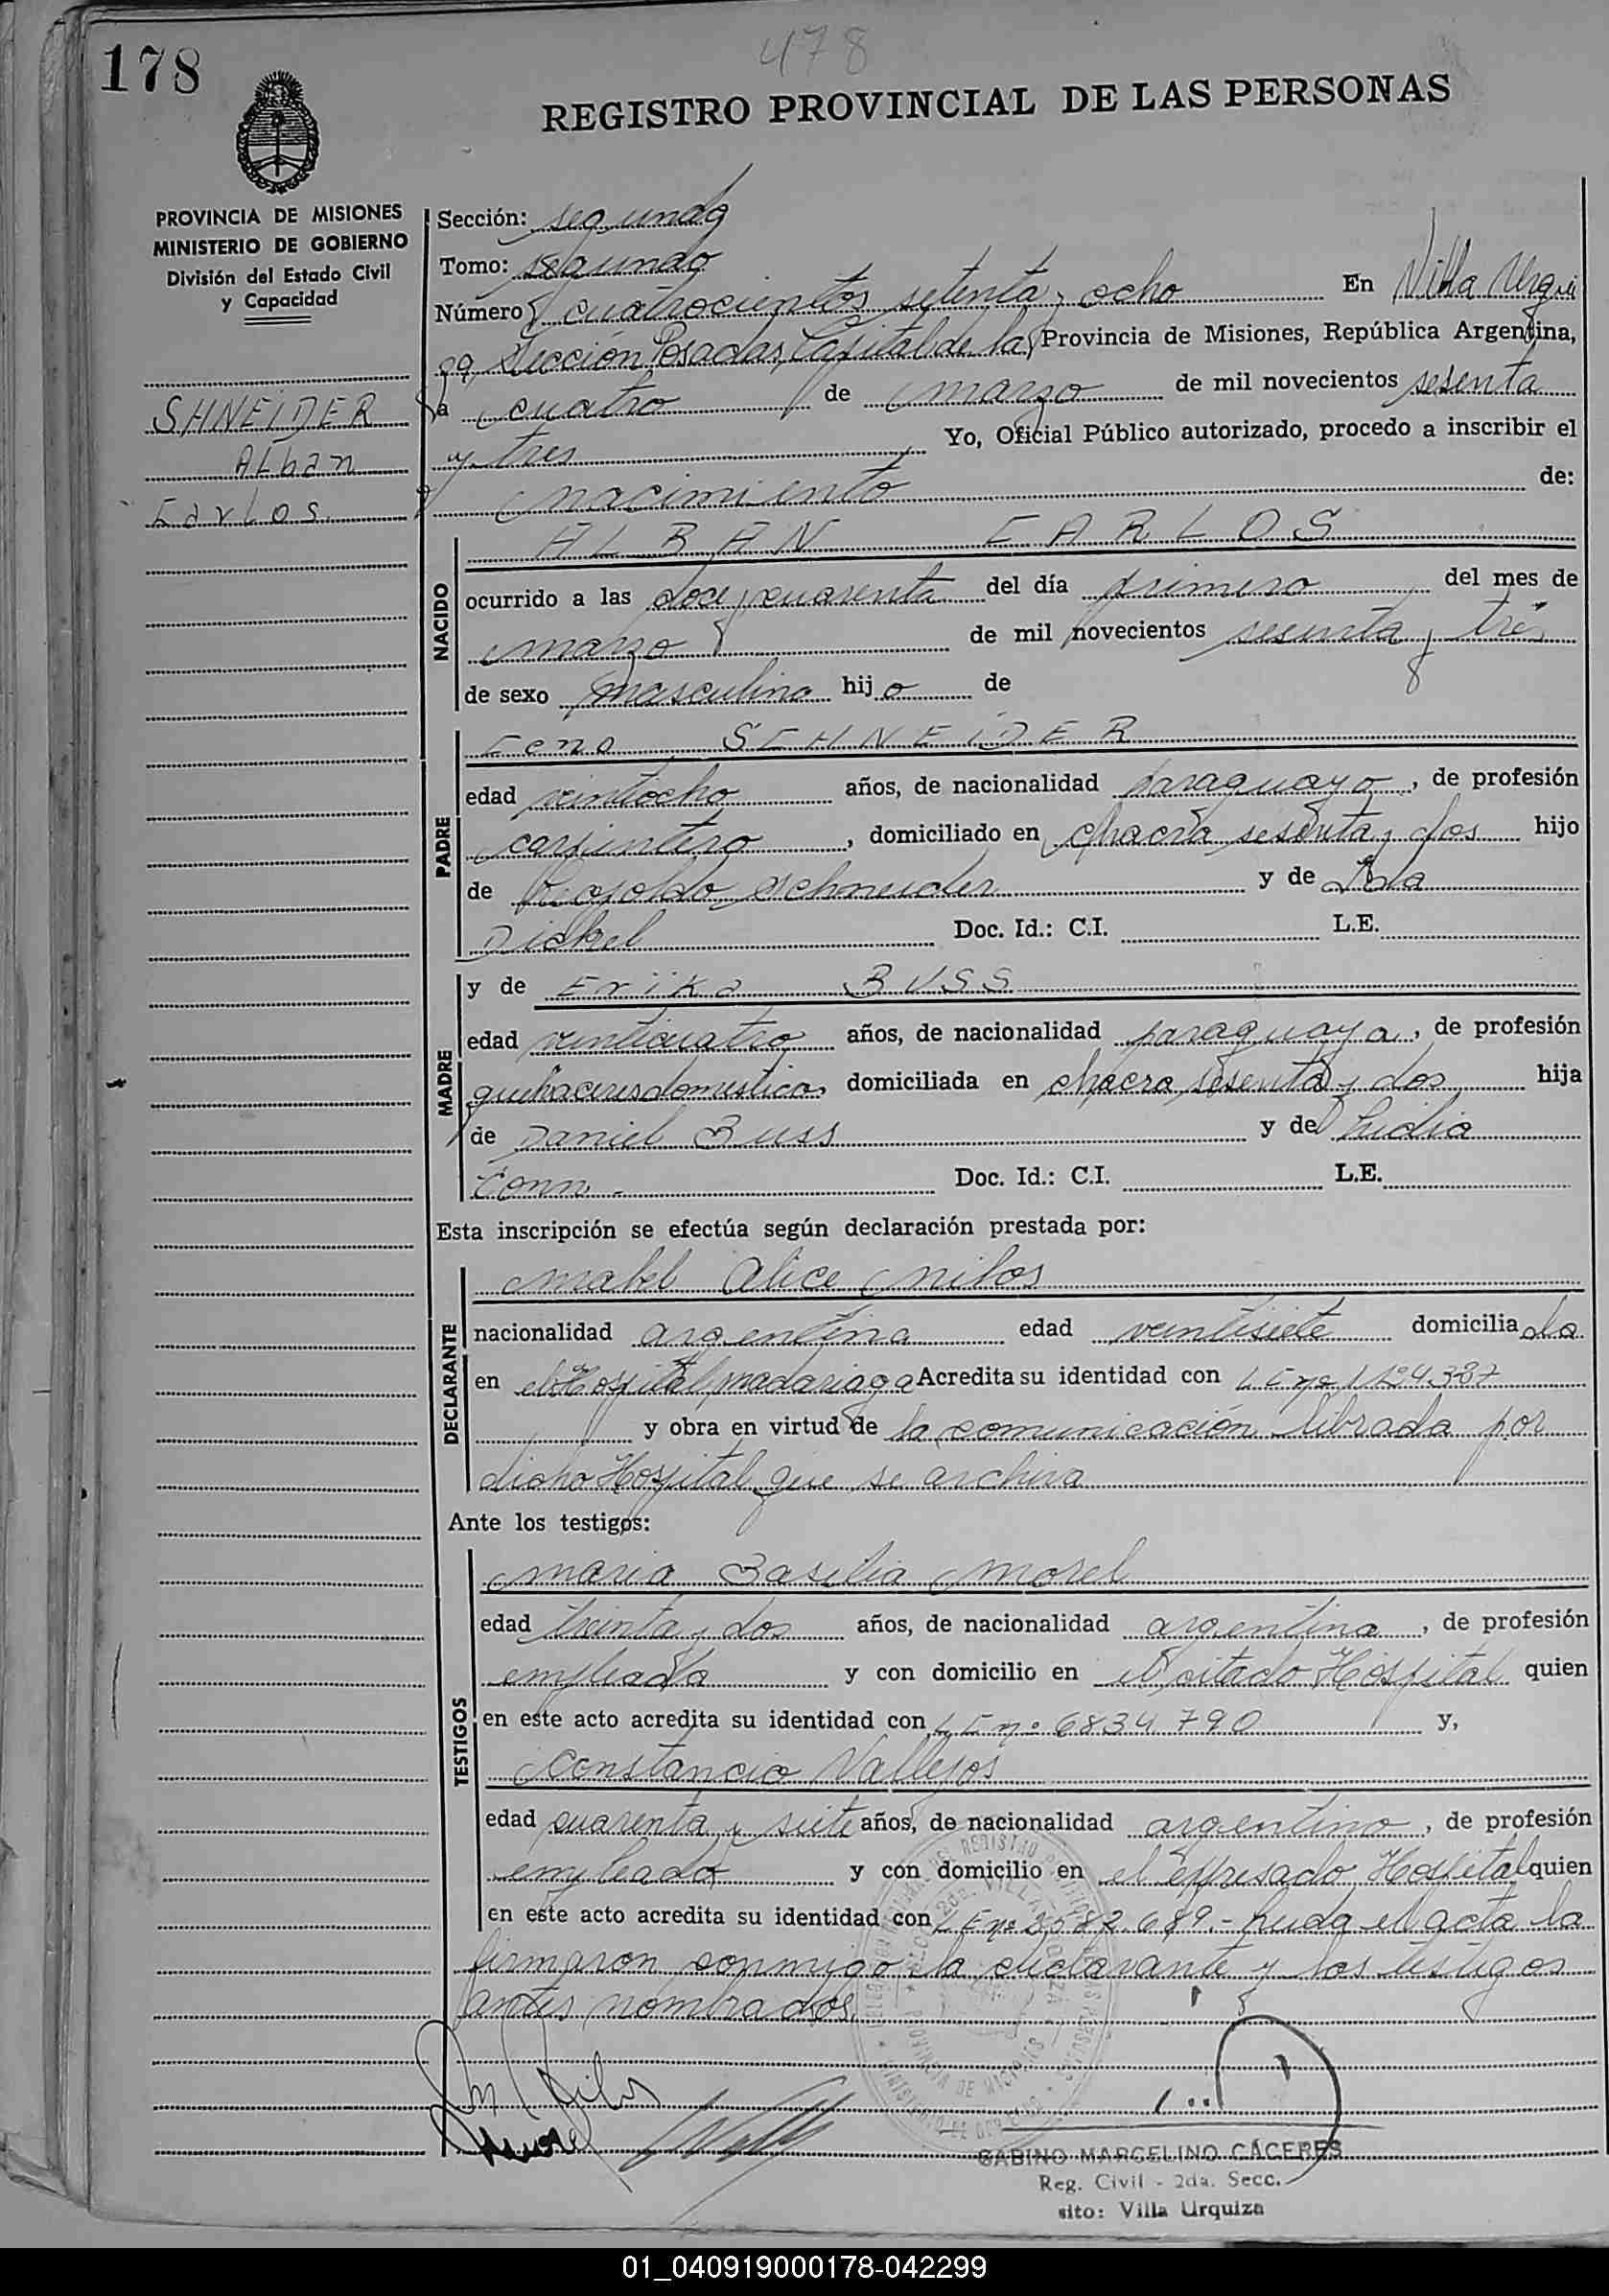 178
478
REGISTRO PROVINCIAL DE LAS PERSONAS
PROVINCIA DE MISIONES
MINISTERIO DE GOBIERNO
División del Estado Civil
y Capacidad
SHNEIDER
Alban
Carlos.
Sección: segunda
Tomo: segundo
Número cuatrocientos setenta y ocho En Villa Urqui
za, Sección Posadas, Capital de la Provincia de Misiones, República Argentina,
a cuatro de marzo de mil novecientos sesenta
y tres Yo, Oficial Público autorizado, procedo a inscribir el
nacimiento de:
NACIDO
ALBAN CARLOS
ocurrido a las doce y cuarenta del día primero del mes de
marzo de mil novecientos sesenta y tres
de sexo masculino hijo de
PADRE
SCHNEIDER
edad veintiocho años, de nacionalidad paraguayo, de profesión
carpintero, domiciliado en chacra sesenta y dos hijo
de Leopoldo Schneider y de Ida
Dickel Doc. Id.: C.I. L.E.
MADRE
y de Erika BUSS
edad veinticuatro años, de nacionalidad paraguaya, de profesión
quehaceres domesticos domiciliada en chacra sesenta y dos hija
de Daniel Buss y de Lidia
Conn.- Doc. Id.: C.I. L.E.
Esta inscripción se efectúa según declaración prestada por:
DECLARANTE
Mabel Alice Milos
nacionalidad argentina edad veintisiete domiciliada
en el Hospital Madariaga Acredita su identidad con
y obra en virtud de la comunicación librada por
dicho Hospital que se archiva
Ante los testigos:
TESTIGOS
Maria Basilia Morel
edad treinta y dos años, de nacionalidad argentina, de profesión
empleada y con domicilio en el citado Hospital quien
en este acto acredita su identidad con L E nº 6834790 y,
Constancio Vallejos
edad cuarenta y siete años, de nacionalidad argentino, de profesión
empleado y con domicilio en el expresado Hospital quien
en este acto acredita su identidad con L E nº 2582.689.- Leida el acta la
firmaron conmigo la declarante y los testigos
antes nombrados
GABINO MARCELINO CÁCERES
Reg. Civil - 2da. Secc.
sito: Villa Urquiza
01_040919000178-042299